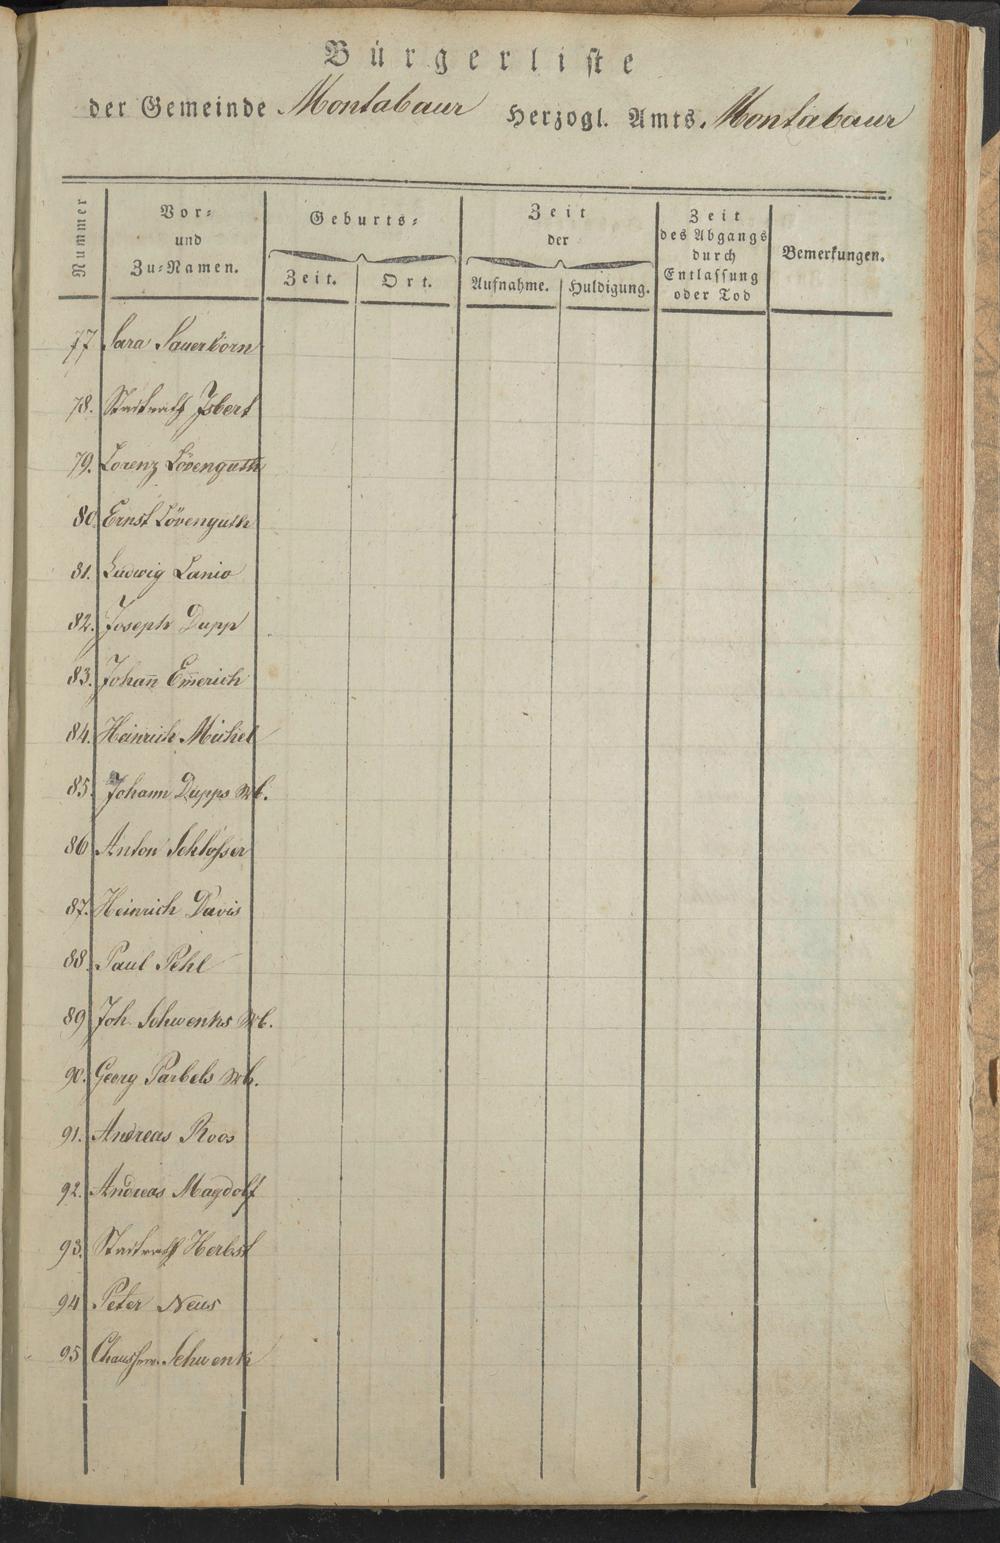 Bürgerliste
der Gemeinde Montabaur Herzogl. Amts. Montabaur
Nummer
Vor- und Zu-Namen.
Geburts-
Zeit. Ort.
Zeit der
Aufnahme. Huldigung.
Zeit des Abgangs durch Entlassung oder Tod
Bemerkungen.
77 Sara Sauerborn
78. Stadtrath Isbert
79. Lorenz Lövenguth
80. Ernst Lövenguth
81. Ludwig Lanio
82. Joseph Dupp
83. Johan̅ Em̅erich
84. Heinrich Michel
85. Johann Dupps Wb.
86 Anton Schlosser
87. Heinrich Davis
88. Paul Pehl
89 Joh. Schwenks Wb.
90. Georg Parbels Wb.
91. Andreas Roos
92. Andreas Magdolf
93. Stadtrath Herbst
94 Peter Neus
95 Schwenk